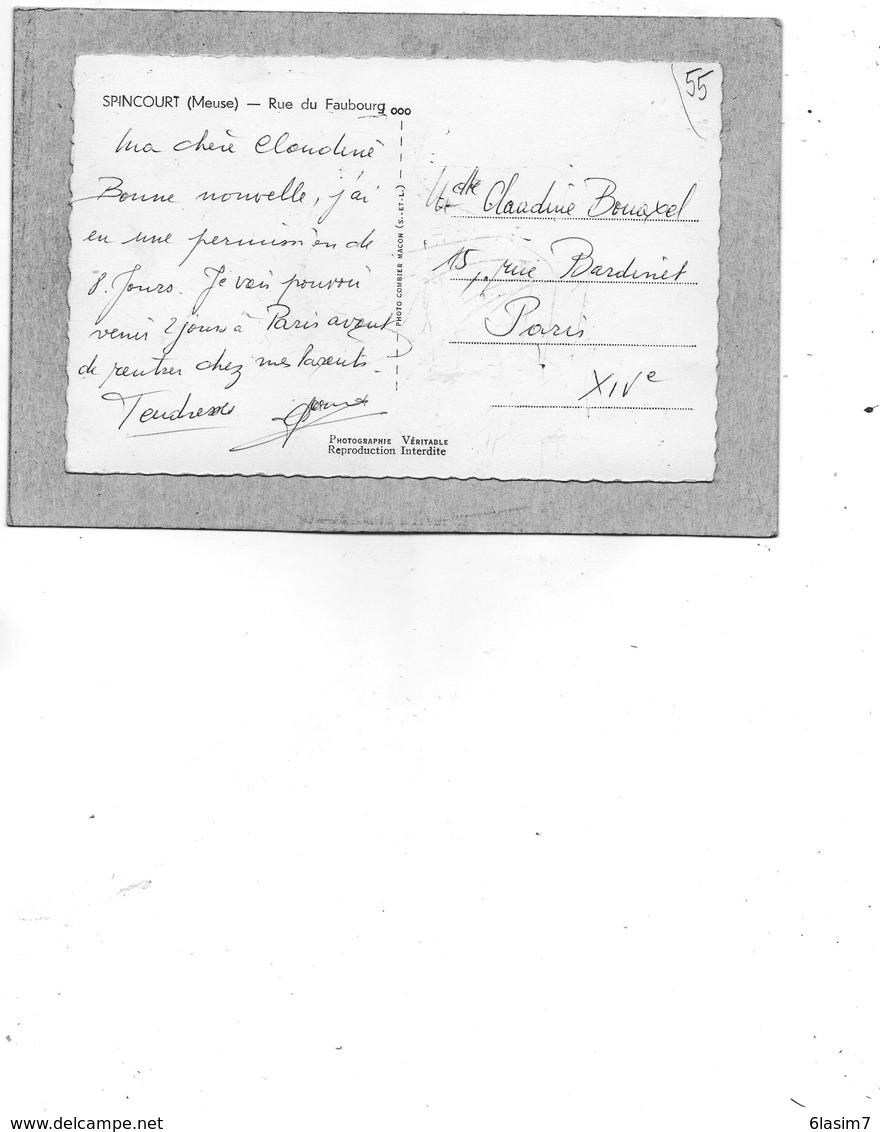 SPINCOURT (Meuse) — Rue du Faubourg
ooo
55
Ma chère Claudine
Bonne nouvelle, j'ai
eu une permission de
8. Jours. Je vais pouvoir
venir 2 jours à Paris avant
de rentrer chez mes Parents.
Tendresses
PHOTO COMBIER MACON (S.-ET-L.)
PHOTOGRAPHIE VÉRITABLE
Reproduction Interdite
Melle Claudine Bouaxel
15, rue Bardinet
Paris
XIVe
www.delcampe.net
6lasim7